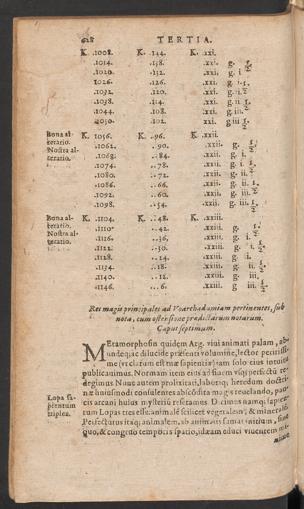 628 TERTIA.
K. .1008. K. .144. K. .xxi.
.1014. .138. .xxi. g. ½.
.1020. .132. .xxi. g. i
.1026. .126. .xxi. g. i ½.
.1032. .120. .xxi. g. ii.
.1038. .114. .xxi. g. ii ½.
.1044. .108. .xxi. g. iii
.1050. .102. .xxi. g. iii ½.
Bona al-
teratio.
Nostra al-
teratio.
K. 1056. K. .96. K. .xxii.
.1062. . 90. .xxii. g. ½.
.1068. . 84. .xxii. g. i.
.1074. . 78. .xxii. g. i ½.
.1080. . 72. .xxii. g. ii.
.1086. . 66. .xxii. g. ii. ½.
.1092. . 60. .xxii. g. iii.
.1098. . 54. .xxii. g. iii. ½.
Bona al-
teratio.
Nostra al-
teratio.
K. .1104. K. .48. K. .xxiii.
.1110. . 42. .xxiii. g. ½.
.1116. . 36. .xxiii. g. i.
.1122. . 30. .xxiii. g. i. ½.
.1128. . 24. .xxiii. g. ii.
.1134. . 18. .xxiii. g. ii. ½.
.1140. . 12. .xxiii. g. iii.
.1146. . 6. .xxiii. g. iii. ½.
Res magis principales ad Voarchadumiam pertinentes, sub
nota, cum ostensione prædictarum notarum.
Caput septimum.
Metamorphosin quidem Arg. viui animati palam, ab-
undeq́; ac dilucide præsenti volumine, lector
me (vt clarum est tuæ sapientiæ) iam solo eius intuitu
publicauimus. Normam item eius ad suum vsq; perfectū re-
degimus Nunc autem prolixitati, laboriq́; hæredum doctri-
næ huiusmodi consulentes abscōdita magis reuelando, pau-
cis arcani huius mysteriū reseramus. Dicimus namq́; sapien-
Lopa sa-
pientum
triplex.
tum Lopas tres esse: animalē scilicet vegetalem, & mineralē.
Perfectarus itaq; animalem, ab animatis samas
quo, & congruo temporis spatio, idæam educi viuentem